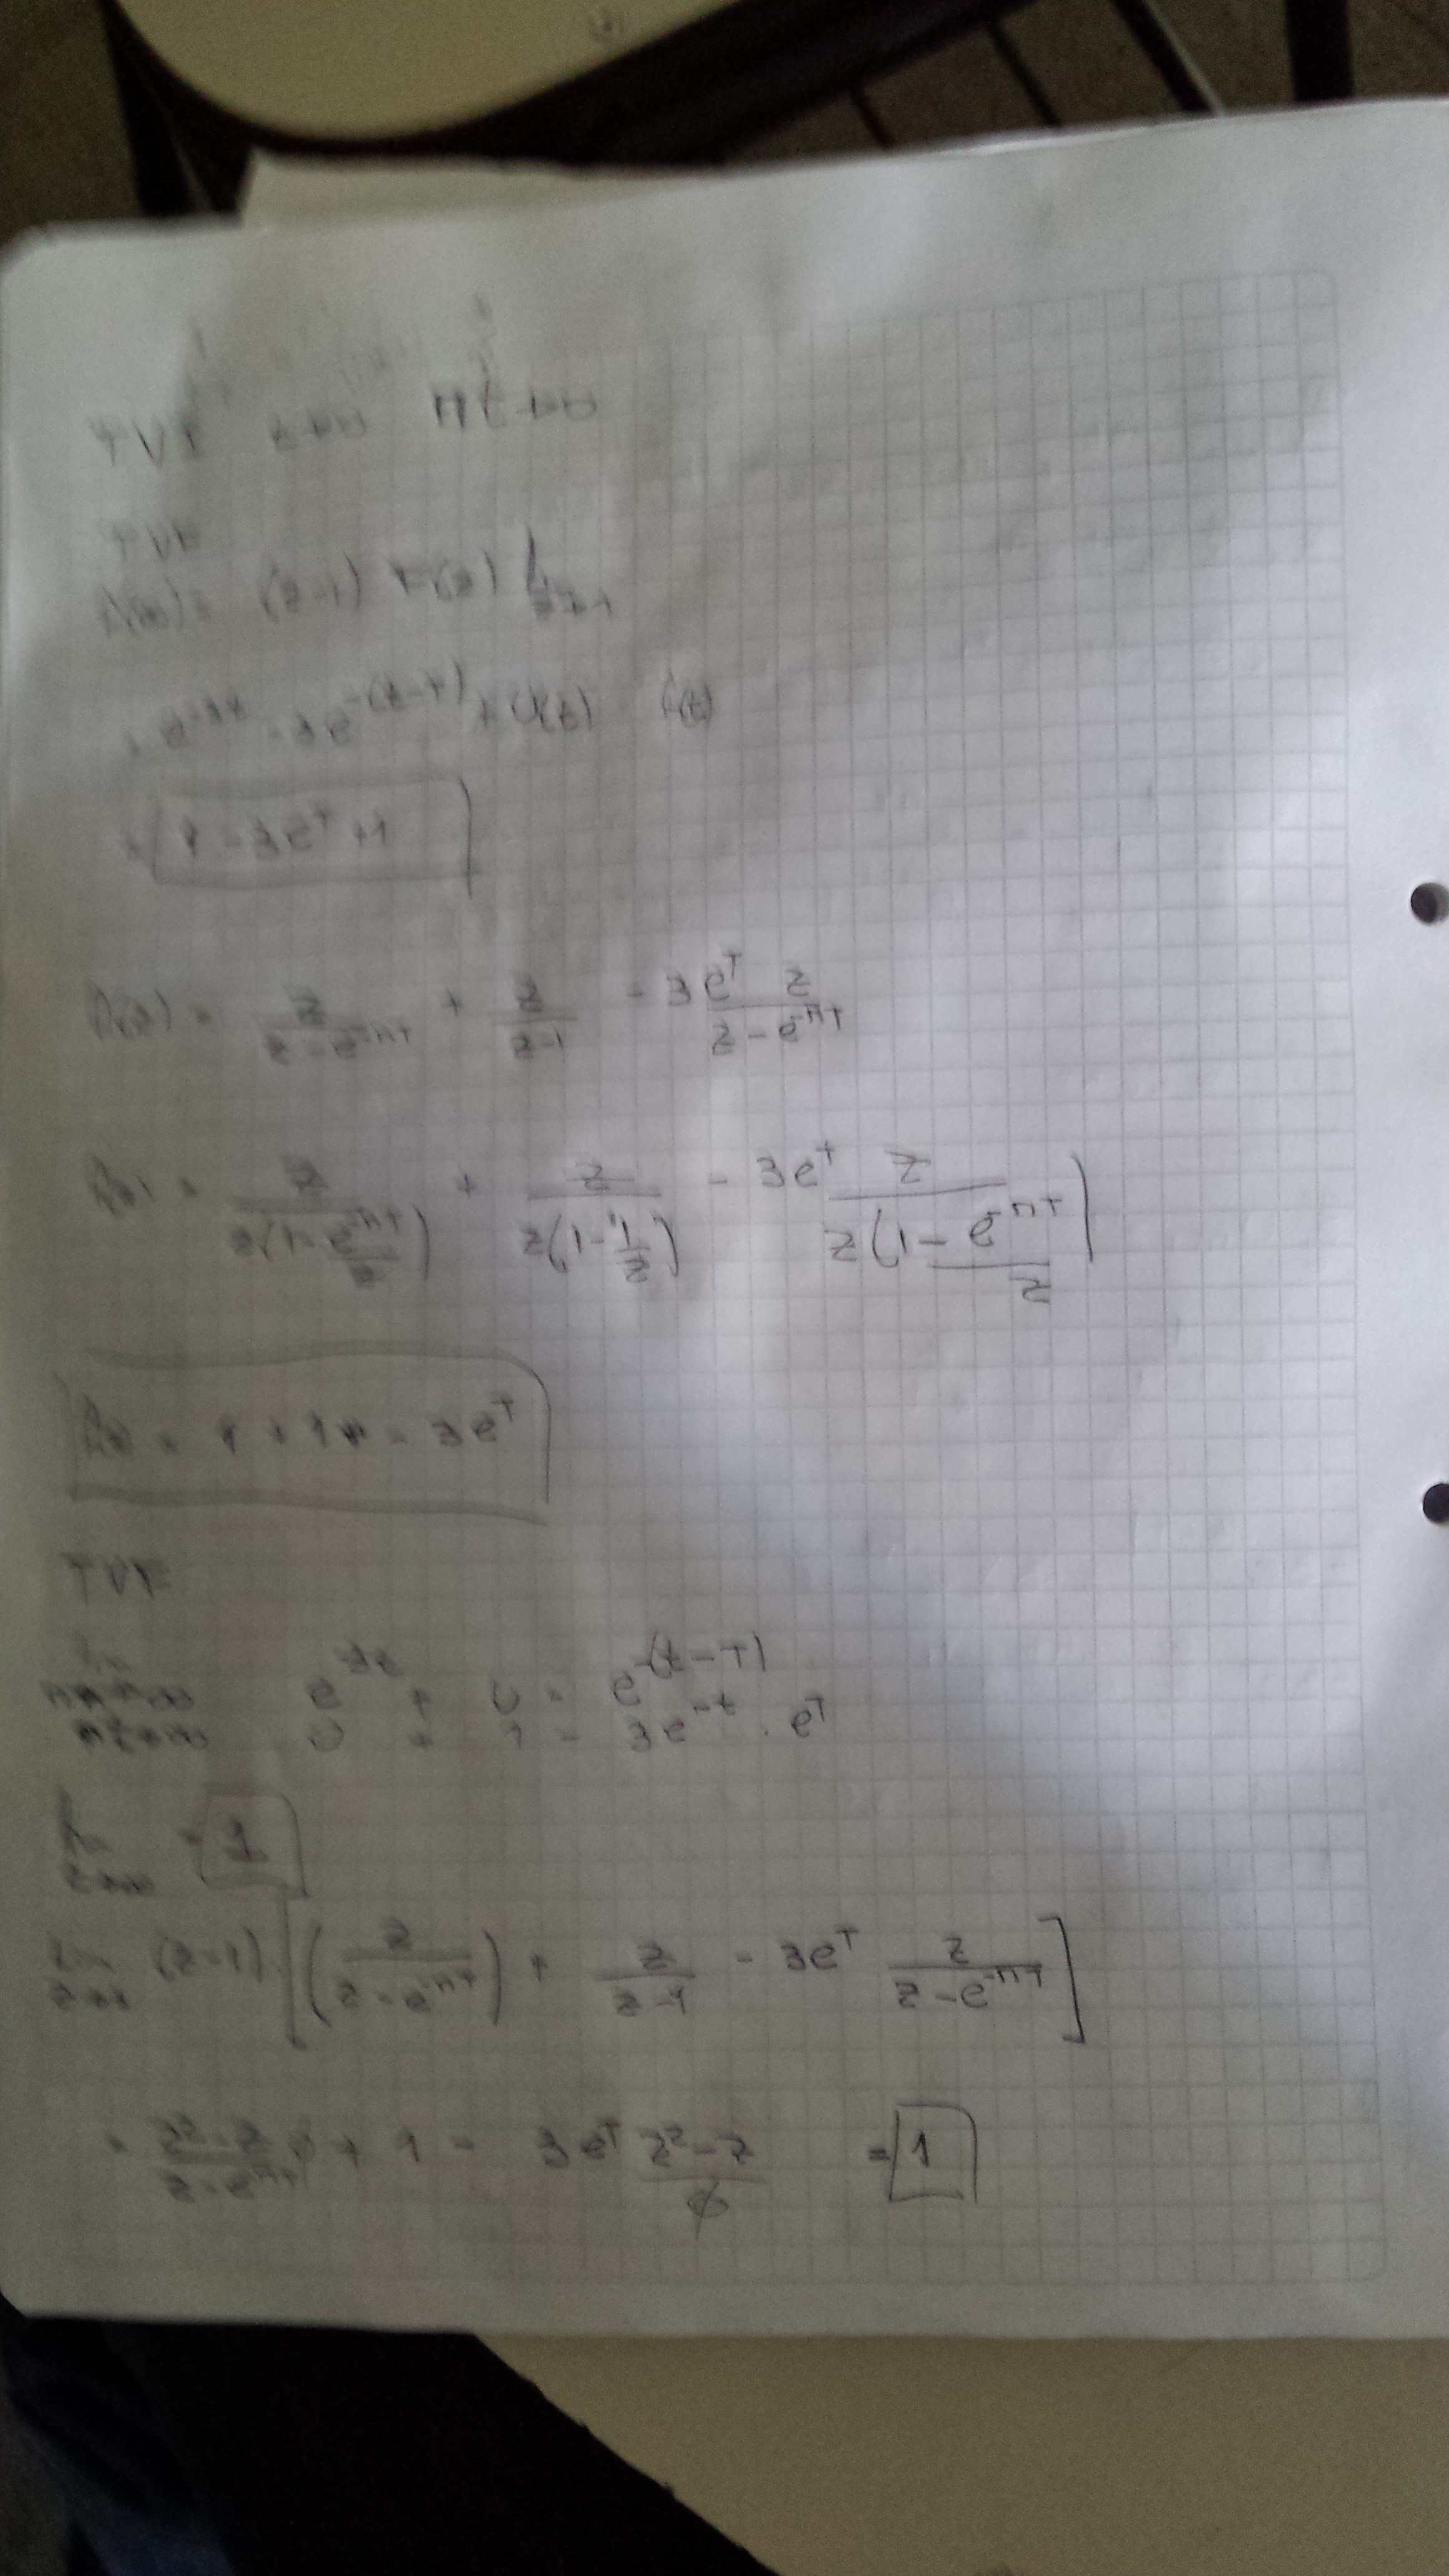 TVI z→∞ nt→∞
TVF
f(∞) = (z-1) F(z) | z→1
= e^-3t - 3e^-(t-T) + U(t) f(t)
= 1 - 3e^T + 1
f(z) = z/(z - e^-nT) + z/(z-1) - 3e^T z/(z - e^-nT)
f(z) = z/(z(1 - e^-nT/z)) + z/(z(1 - 1/z)) - 3e^T z/(z(1 - e^-nT/z))
= 1 + 1 - 3e^T
TVF
e^-3t + U - e^-(t-T)
nt→∞ 0 + 1 - 3e^-t . e^T
= 1
lim z→1 (z-1) · [(z/(z - e^-nT)) + z/(z-1) - 3e^T z/(z - e^-nT)]
= (z²-z)/(z - e^-nT) + 1 - 3e^T (z²-z)/ϕ = 1